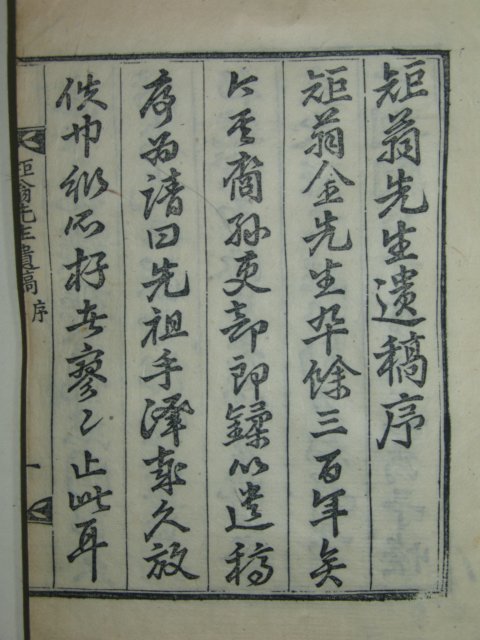 矩翁先生遺稿序
矩翁金先生卒餘三百年矣
今其裔孫以遺稿
序爲請曰先祖手澤歲久放
佚巾衍所存者寥〻止此耳
矩翁先生遺稿 序 一